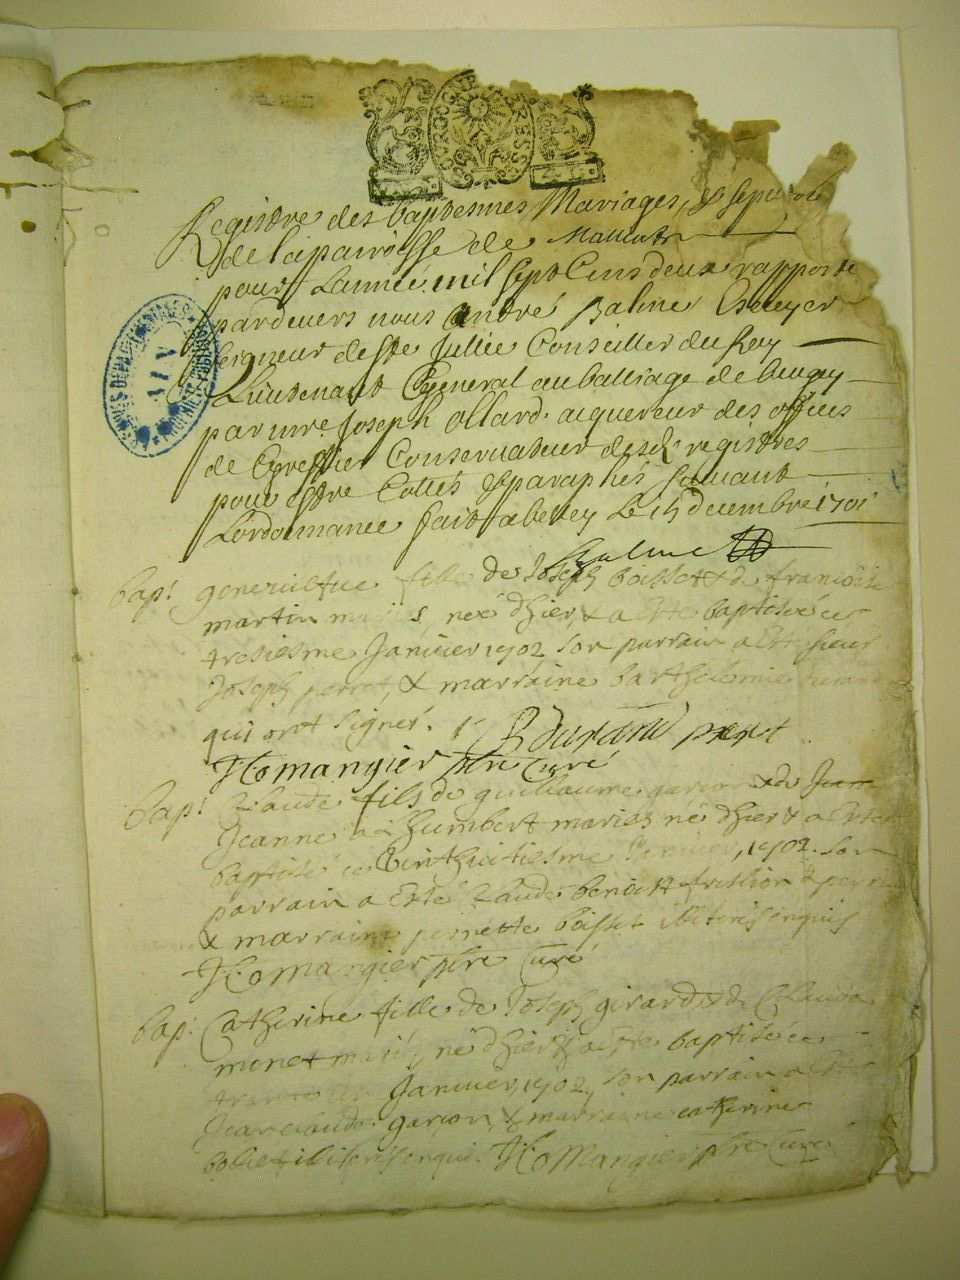 BOURGOGNE BRESSE
Registre des baptesmes Mariages, & sepul
de la parroisse de
pour Lannée mil sept Cens deux rapporté
pardevers nous André Balme Escuyer
seigneur de Ste Jullie Conseiller du Roy
Lieutenant General au balliage de bugey
par mre Joseph Ollard aquereur des offices
de Greffier Conservateur desd registres
pour estre Cottés & paraphés suivant
Lordonnance fait a belley Le 15 decembre 1701
Balme
bap! geneviefve fille de Joseph boisset & de françoise
martin née d'hier & a esté baptisée ce
tresiesme Janvier 1702 son parrain a esté sieur
Joseph perret, & marraine barthelemie
qui ont signés. B durand perret
Homangier pbre curé
bap! Claude fils de guillaume garçon & de
Jeanne humbert mariés né d'hier & a esté
baptisé ce vinthuitiesme Janvier, 1702. son
parrain a esté Claude benoist
& marraine pernette boisset illiterés enquis
Homangier pbre Curé
bap! Catherine fille de Joseph girardet & de Clauda
monet mariés né d'hier & a esté baptisée ce
Janvier, 1702, son parrain a esté
Jean claude garçon & marraine catherine
illiterés enquis Homangier pbre Curé